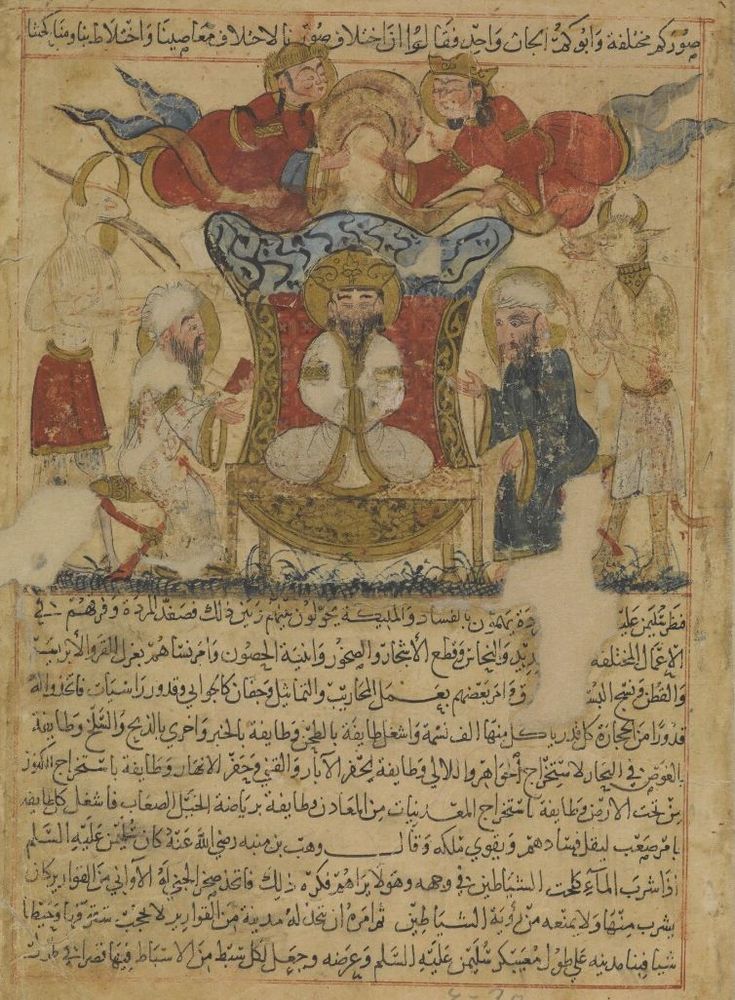 صوركم مختلفة وابوكم الجان واحد فقالوا ان اختلاف صورنا لاختلاف معاصينا واختلاط بنا ومناكحتنا
فنظر سليمن عليه دة يهمون بالفساد والمليكة يحولون بينهم وبين ذلك فصفد المردة وفرقهم في
الاعمال المختلفه يد والنحاس وقطع الاشجار والصخور وابنية الحصون وامر نساهم بغزل القز والابريسم
والقطن ونسج البس وامر بعضهم بعمل المحاريب والتماثيل وجفان كالجوابي وقدور راسيات فاتخذوا له
قدورا من الحجارة كل قدر ياكل منها الف نسمة واشغل طايفة بالطحن وطايفة بالخبز واخري بالذبح والسلخ وطايفة
بالغوص في البحار لاستخراج الجواهر واللالي وطايفة بحفر الابار والقني وحفر الانهار وطايفة باستخراج الكنوز
من تحت الارض وطايفة باستخراج المعدنيات من المعادن وطايفة برياضة الخيل الصعاب فاشغل كل طايفة
بامر صعب ليقل فسادهم ويقوي ملكه وقال وهب بن منبه رضي الله عنه كان سليمن عليه السلم
اذا شرب الماء كلحت الشياطين في وجهه وهو لا يراهم فكره ذلك فاتخذ صخر الجني له الاواني من القوارير كان
يشرب منها ولا يمنعه من روية الشياطين ثم امره ان يتخذ له مدينة من القوارير لا تحجب سقوفها وحيطانها
شيا فبنا مدينه علي طول معسكر سليمن عليه السلم وعرضه وجعل لكل سبط من الاسباط فيها قصرا في طول